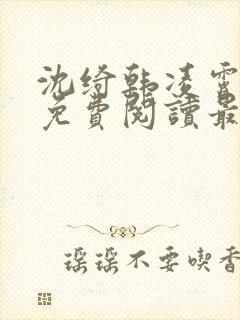 沈绮韩凌霄
免費閱讀最
瑶瑶不要喫香